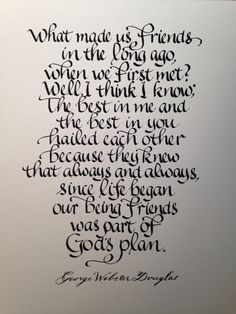 What made us friends
in the long ago,
when we first met?
Well, I think I know;
The best in me and
the best in you
hailed each other
because they knew
that always and always,
since life began
our being friends
was part of
God's plan.
George Webster Douglas